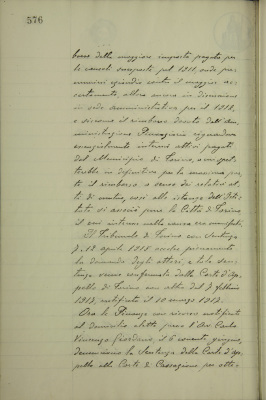 576
borso delle maggiori imposte pagate per
le annate successive pel 1911, onde pre-
munirsi eziandio contro il maggior ac-
certamento, allora ancora in discussione
in sede amministrativa per il 1912,
e siccome il rimborso dovuto dall'Am-
ministrazione Finanziaria riguardava
essenzialmente interessi attivi pagati
dal Municipio di Torino, cui spet-
terebbe in definitiva per la massima par-
te il rimborso a senso dei relativi at-
ti di mutuo, così alle istanze dell'Isti-
tuto si associò pure la Città di Torino
il cui interesse nella causa era manifesto.
Il Tribunale di Torino con Sentenza
7-12 aprile 1915 accolse pienamente
la domanda degli attori, e tale Sen-
tenza venne confermata dalla Corte d'Ap-
pello di Torino con altra del 7 febbraio
1917, notificata il 10 marzo 1917.
Ora le Finanze con ricorso notificato
al domicilio eletto presso l'Avv. Carlo
Vincenzo Giordano, il 6 corrente giugno,
denunciano la Sentenza della Corte d'Ap-
pello alla Corte di Cassazione per otte-